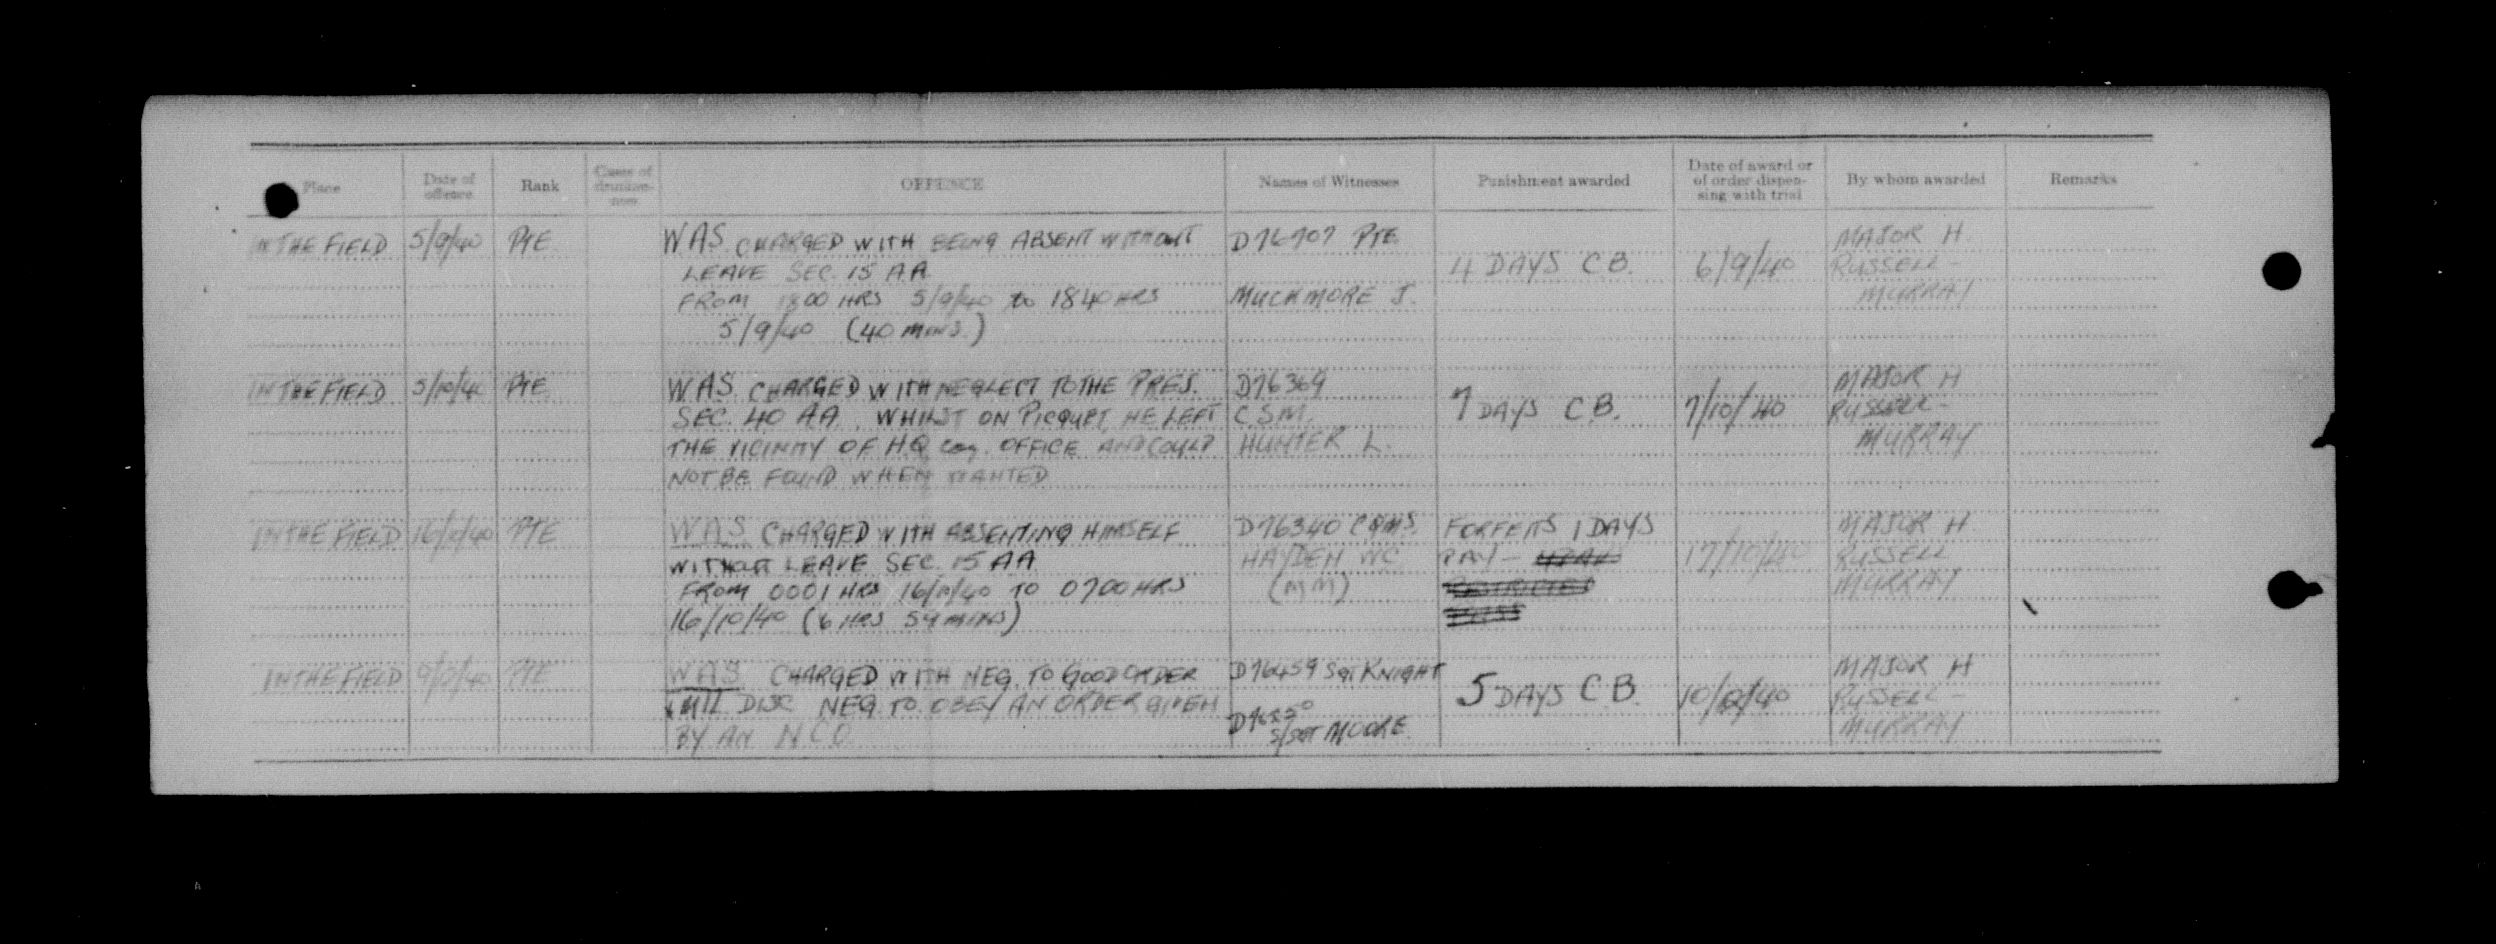 Place | Date of offence | Rank | Cases of drunken-ness | OFFENCE | Names of Witnesses | Punishment awarded | Date of award or of order dispen-sing with trial | By whom awarded | Remarks
IN THE FIELD 5/9/40 PTE. WAS CHARGED WITH BEING ABSENT WITHOUT D76707 PTE. MAJOR H.
LEAVE SEC. 15 A.A. 4 DAYS C.B. 6/9/40 RUSSELL-
FROM 1800 HRS 5/9/40 to 1840 HRS MUCKMORE J. MURRAY
5/9/40 (40 MINS.)
IN THE FIELD 5/10/40 PTE. WAS CHARGED WITH NEGLECT TO THE PREJ. D76369 MAJOR H
SEC. 40 A.A. WHILST ON PICQUET, HE LEFT C.S.M. 7 DAYS C.B. 7/10/40 RUSSELL-
THE VICINITY OF H.Q. Coy. OFFICE AND COULD HUNTER L. MURRAY
NOT BE FOUND WHEN WANTED
IN THE FIELD 16/10/40 PTE WAS CHARGED WITH ABSENTING HIMSELF D76340 CQMS. FORFEITS 1 DAYS MAJOR H
WITHOUT LEAVE SEC. 15 A.A. HAYDEN WC PAY- 17/10/40 RUSSELL
FROM 0001 HRS 16/10/40 TO 0700 HRS (MM) MURRAY
16/10/40 (6 HRS 59 MINS)
IN THE FIELD PTE WAS CHARGED WITH NEG. TO GOOD ORDER D76459 SGT KNIGHT MAJOR H
& MIL DISC NEG. TO OBEY AN ORDER GIVEN 5 DAYS C.B. RUSSELL-
BY AN N.C.O. S/SGT MOORE. MURRAY